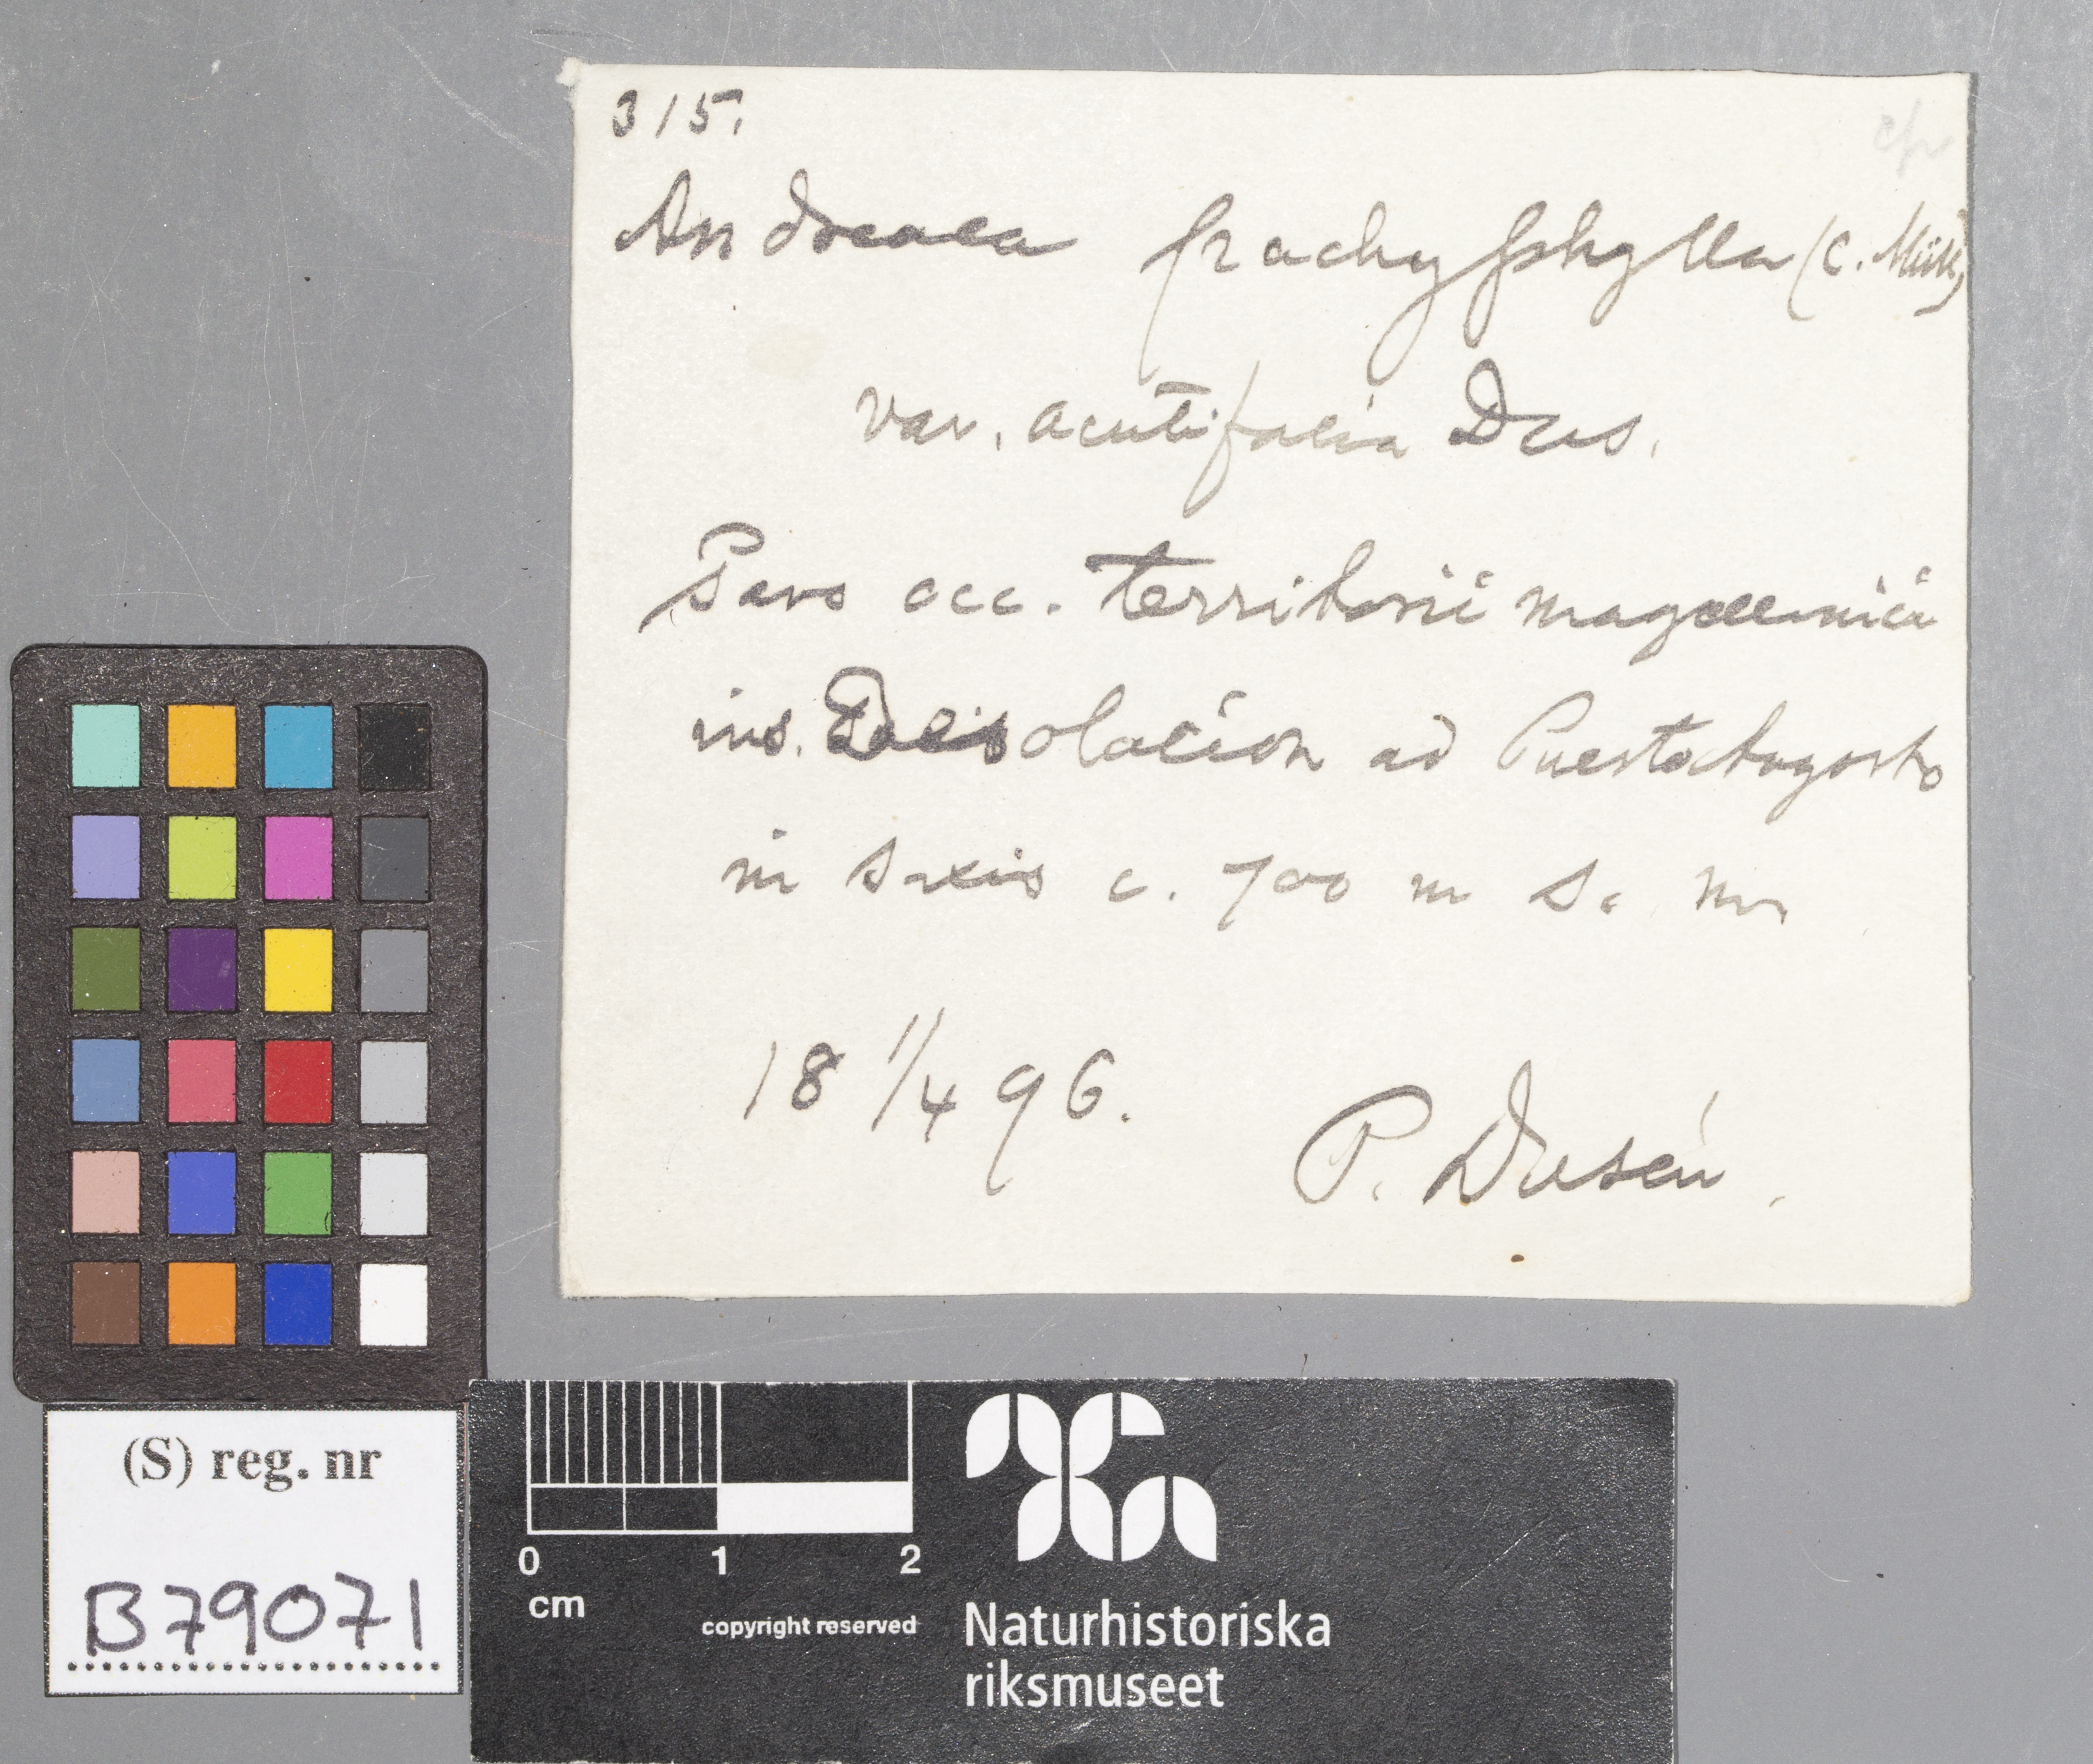 315.
cfr
Andreaea pachyphylla (C. Müll.)
var. acutifolia Dus.
Pars occ. territorii magellanici
ins. Desolacion ad Puerto Angosto
in saxis c. 700 m s. m
18 1/4 96.
P. Dusén.
(S) reg. nr
B79071
0 1 2
cm
copyright reserved
Naturhistoriska
riksmuseet